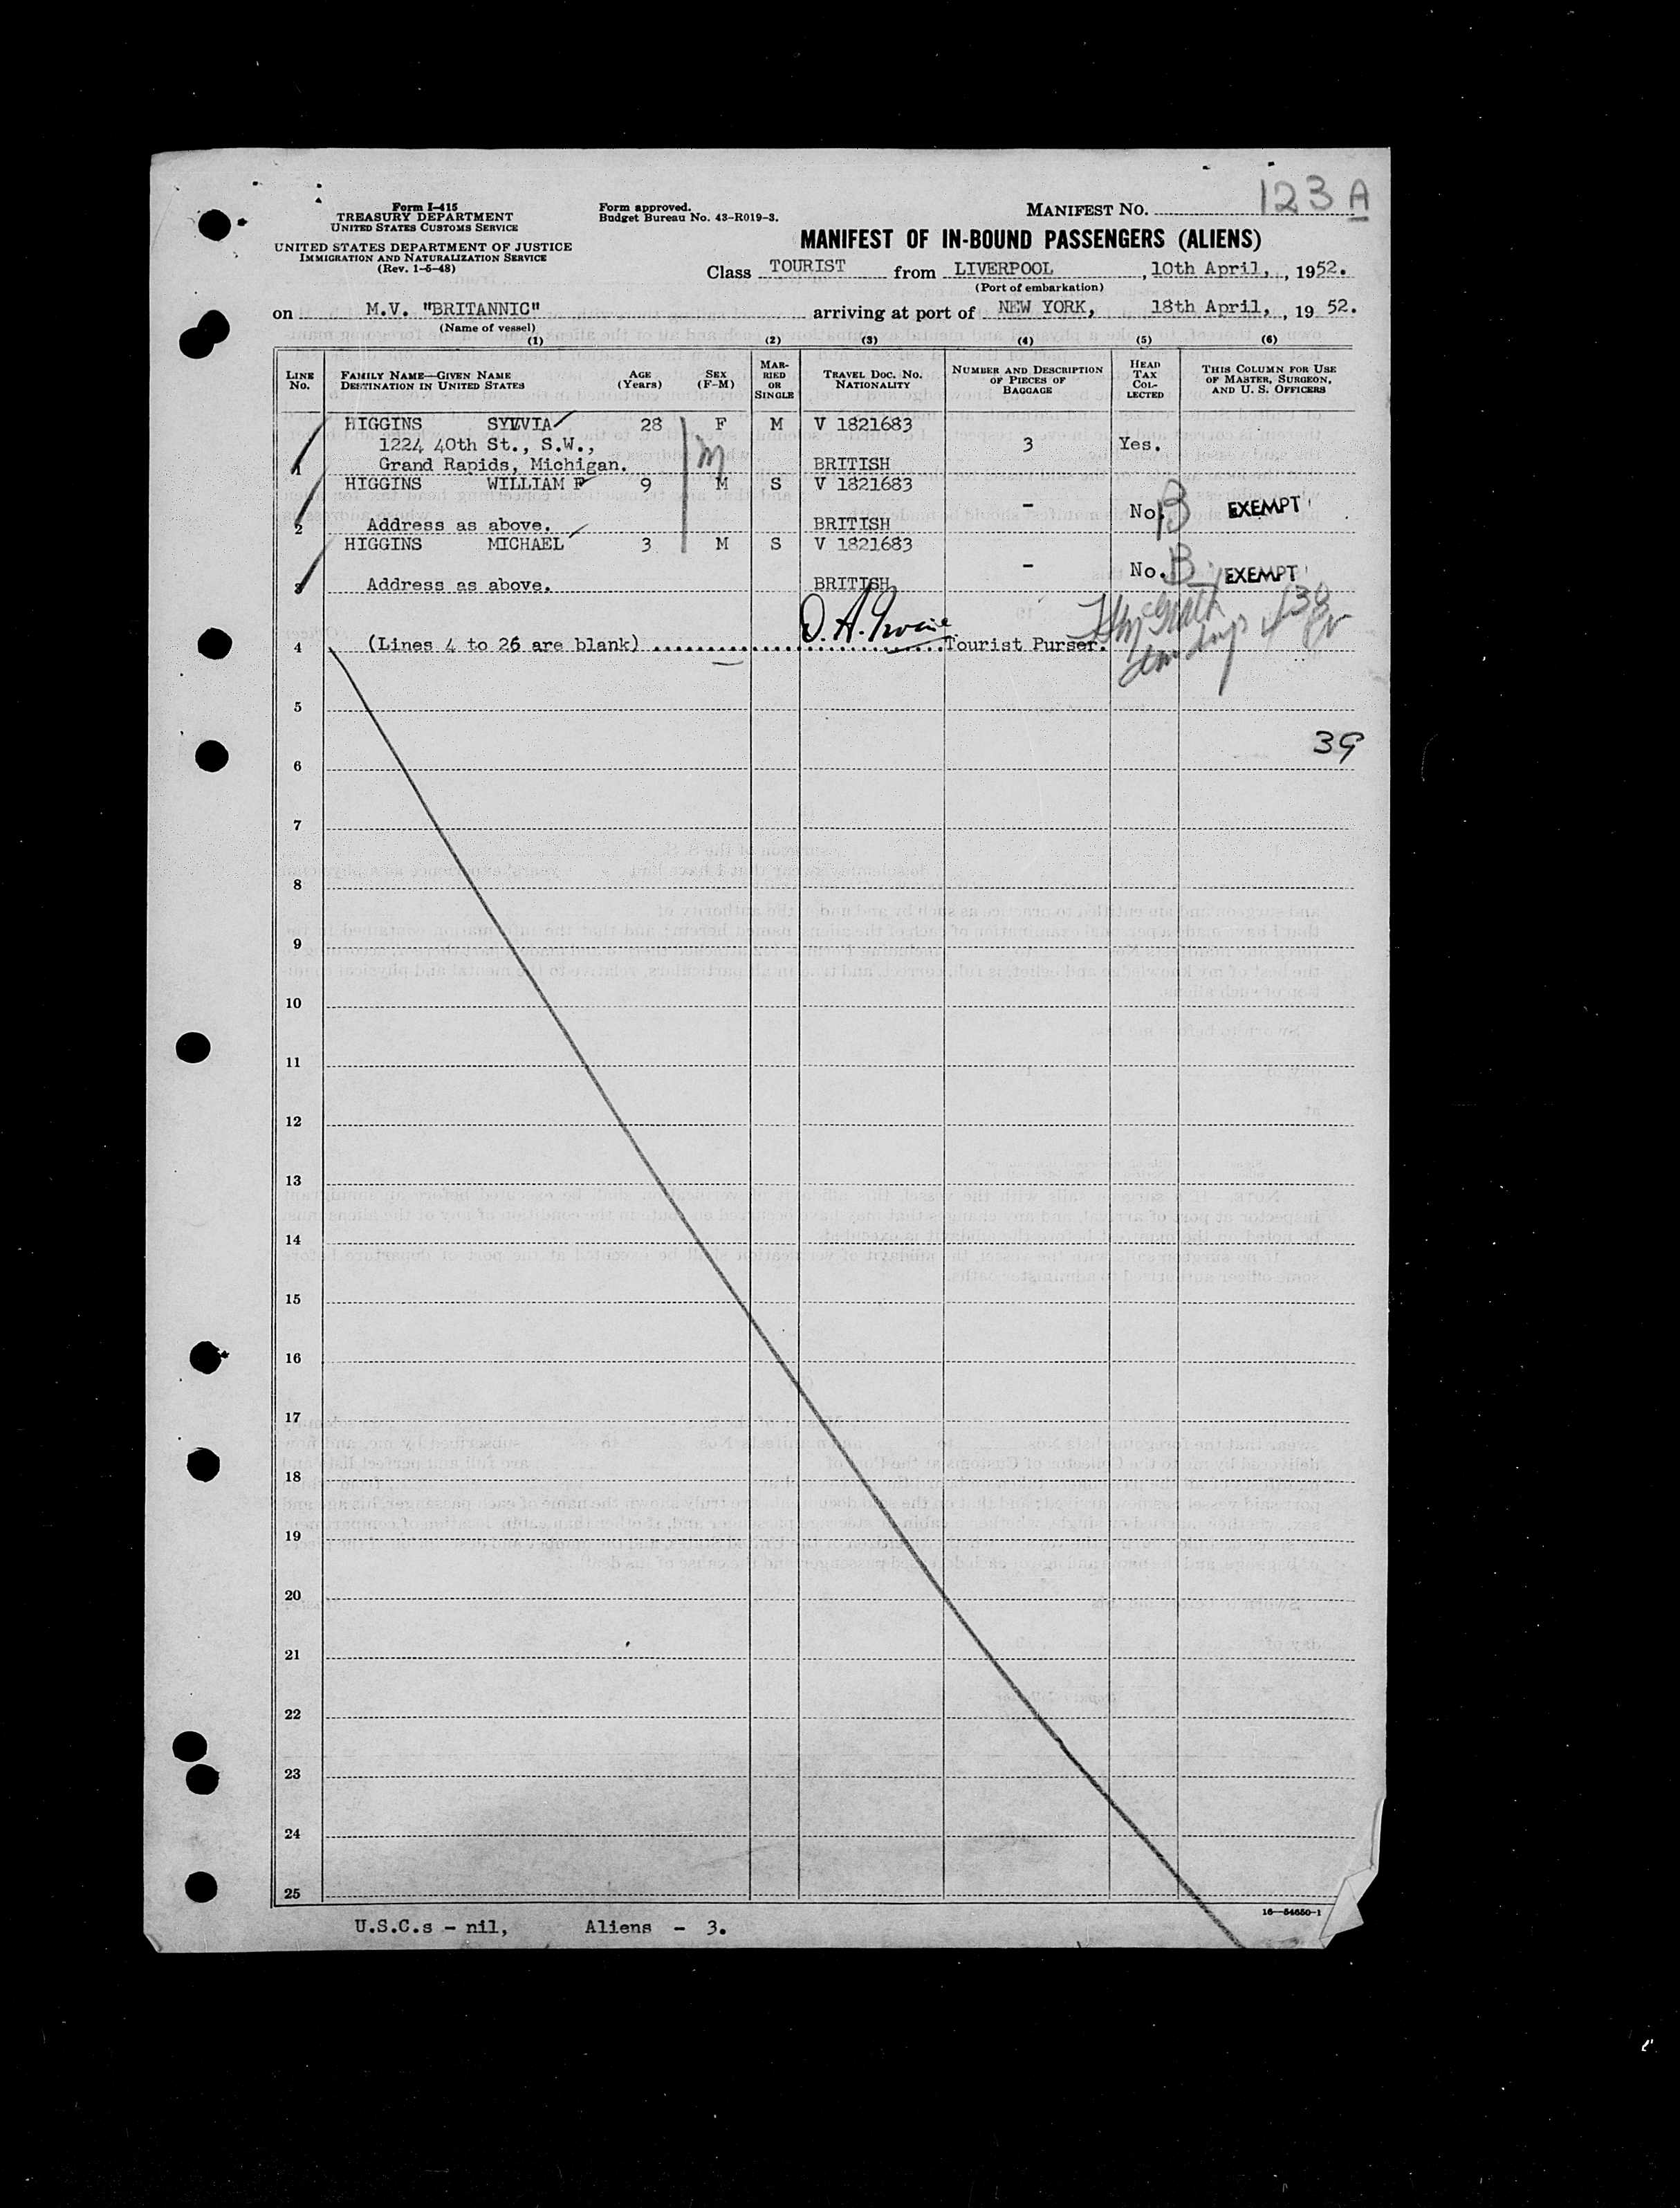 123 A
Form I-415
TREASURY DEPARTMENT
UNITED STATES CUSTOMS SERVICE
UNITED STATES DEPARTMENT OF JUSTICE
IMMIGRATION AND NATURALIZATION SERVICE
(Rev. 1-6-48)
Form approved.
Budget Bureau No. 43-R019-3.
MANIFEST NO.
MANIFEST OF IN-BOUND PASSENGERS (ALIENS)
Class TOURIST from LIVERPOOL, 10th April, , 1952.
(Port of embarkation)
on M.V. "BRITANNIC" arriving at port of NEW YORK, 18th April, , 19 52.
(Name of vessel)
(1) (2) (3) (4) (5) (6)
LINE No. FAMILY NAME—GIVEN NAME DESTINATION IN UNITED STATES AGE (Years) SEX (F-M) MARRIED OR SINGLE TRAVEL DOC. NO. NATIONALITY NUMBER AND DESCRIPTION OF PIECES OF BAGGAGE HEAD TAX COLLECTED THIS COLUMN FOR USE OF MASTER, SURGEON, AND U. S. OFFICERS
HIGGINS SYLVIA 28 F M V 1821683
1224 40th St., S.W., M 3 Yes.
1 Grand Rapids, Michigan. BRITISH
HIGGINS WILLIAM F 9 M S V 1821683
- No. B EXEMPT
2 Address as above. BRITISH
HIGGINS MICHAEL 3 M S V 1821683
- No. B EXEMPT
3 Address as above. BRITISH
4 (Lines 4 to 26 are blank) Tourist Purser.
5
39
6
7
8
9
10
11
12
13
14
15
16
17
18
19
20
21
22
23
24
25
16—54650-1
U.S.C.s - nil, Aliens - 3.